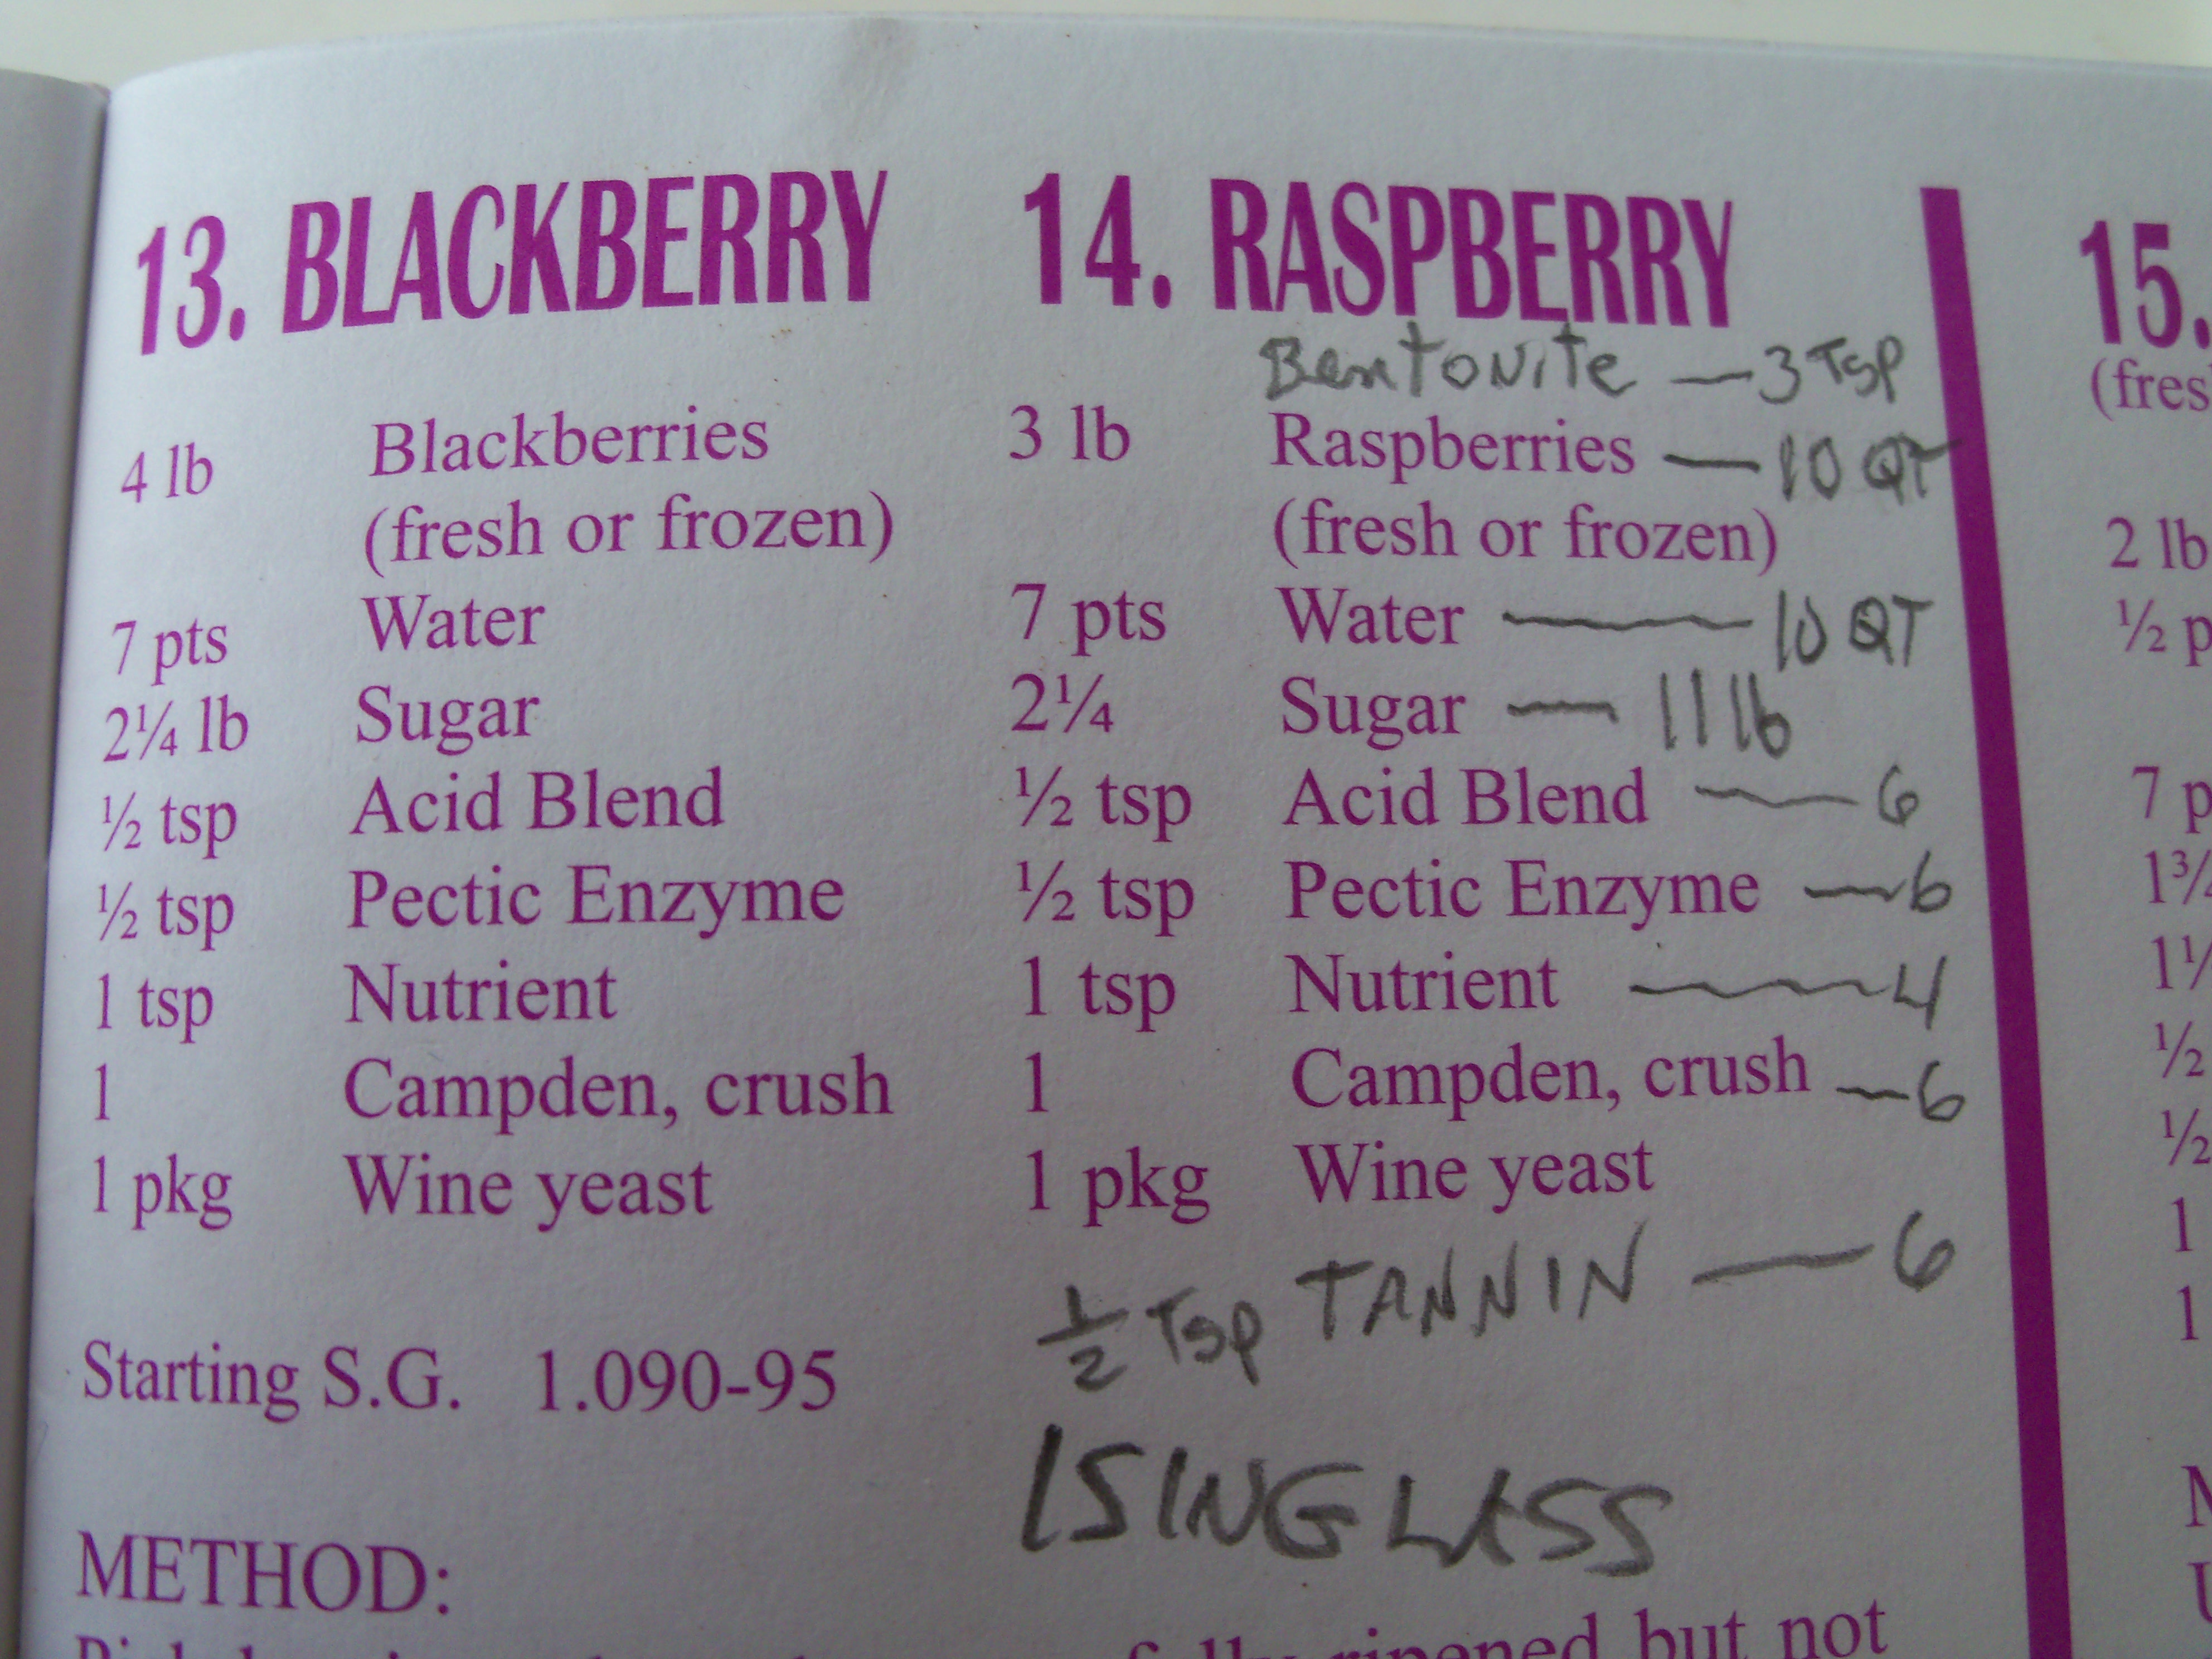 13. BLACKBERRY
4 lb Blackberries
(fresh or frozen)
7 pts Water
2¼ lb Sugar
½ tsp Acid Blend
½ tsp Pectic Enzyme
1 tsp Nutrient
1 Campden, crush
1 pkg Wine yeast
Starting S.G. 1.090-95
METHOD:
14. RASPBERRY
Bentonite — 3 Tsp
3 lb Raspberries — 10 QT
(fresh or frozen)
7 pts Water — 10 QT
2¼ Sugar — 11 lb
½ tsp Acid Blend — 6
½ tsp Pectic Enzyme — 6
1 tsp Nutrient — 4
1 Campden, crush — 6
1 pkg Wine yeast
½ Tsp TANNIN — 6
ISINGLASS
fully ripened but not
15.
(fres
2 lb
½ p
7 p
1¾
1½
½
½
1
1